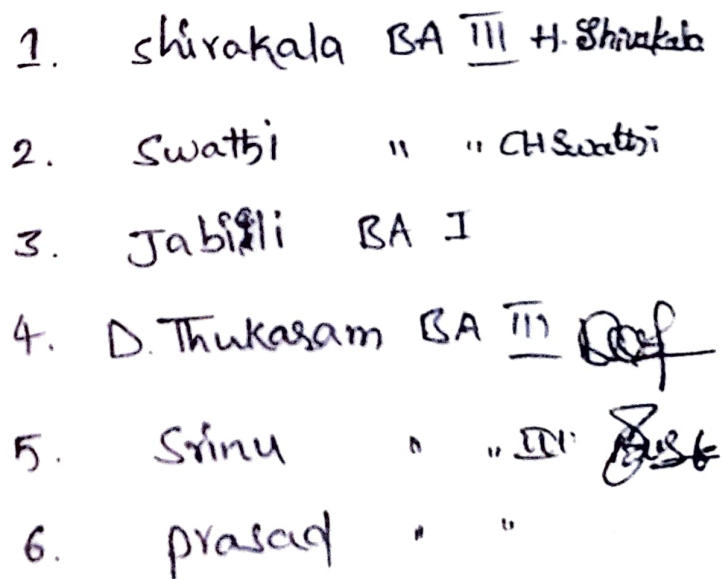 1. Shirakala BA III H. Shirakala
2. Swathi " " CH Swathi
3. Jabilli BA I
4. D. Thukaram BA III
5. Srinu " " III
6. prasad " "